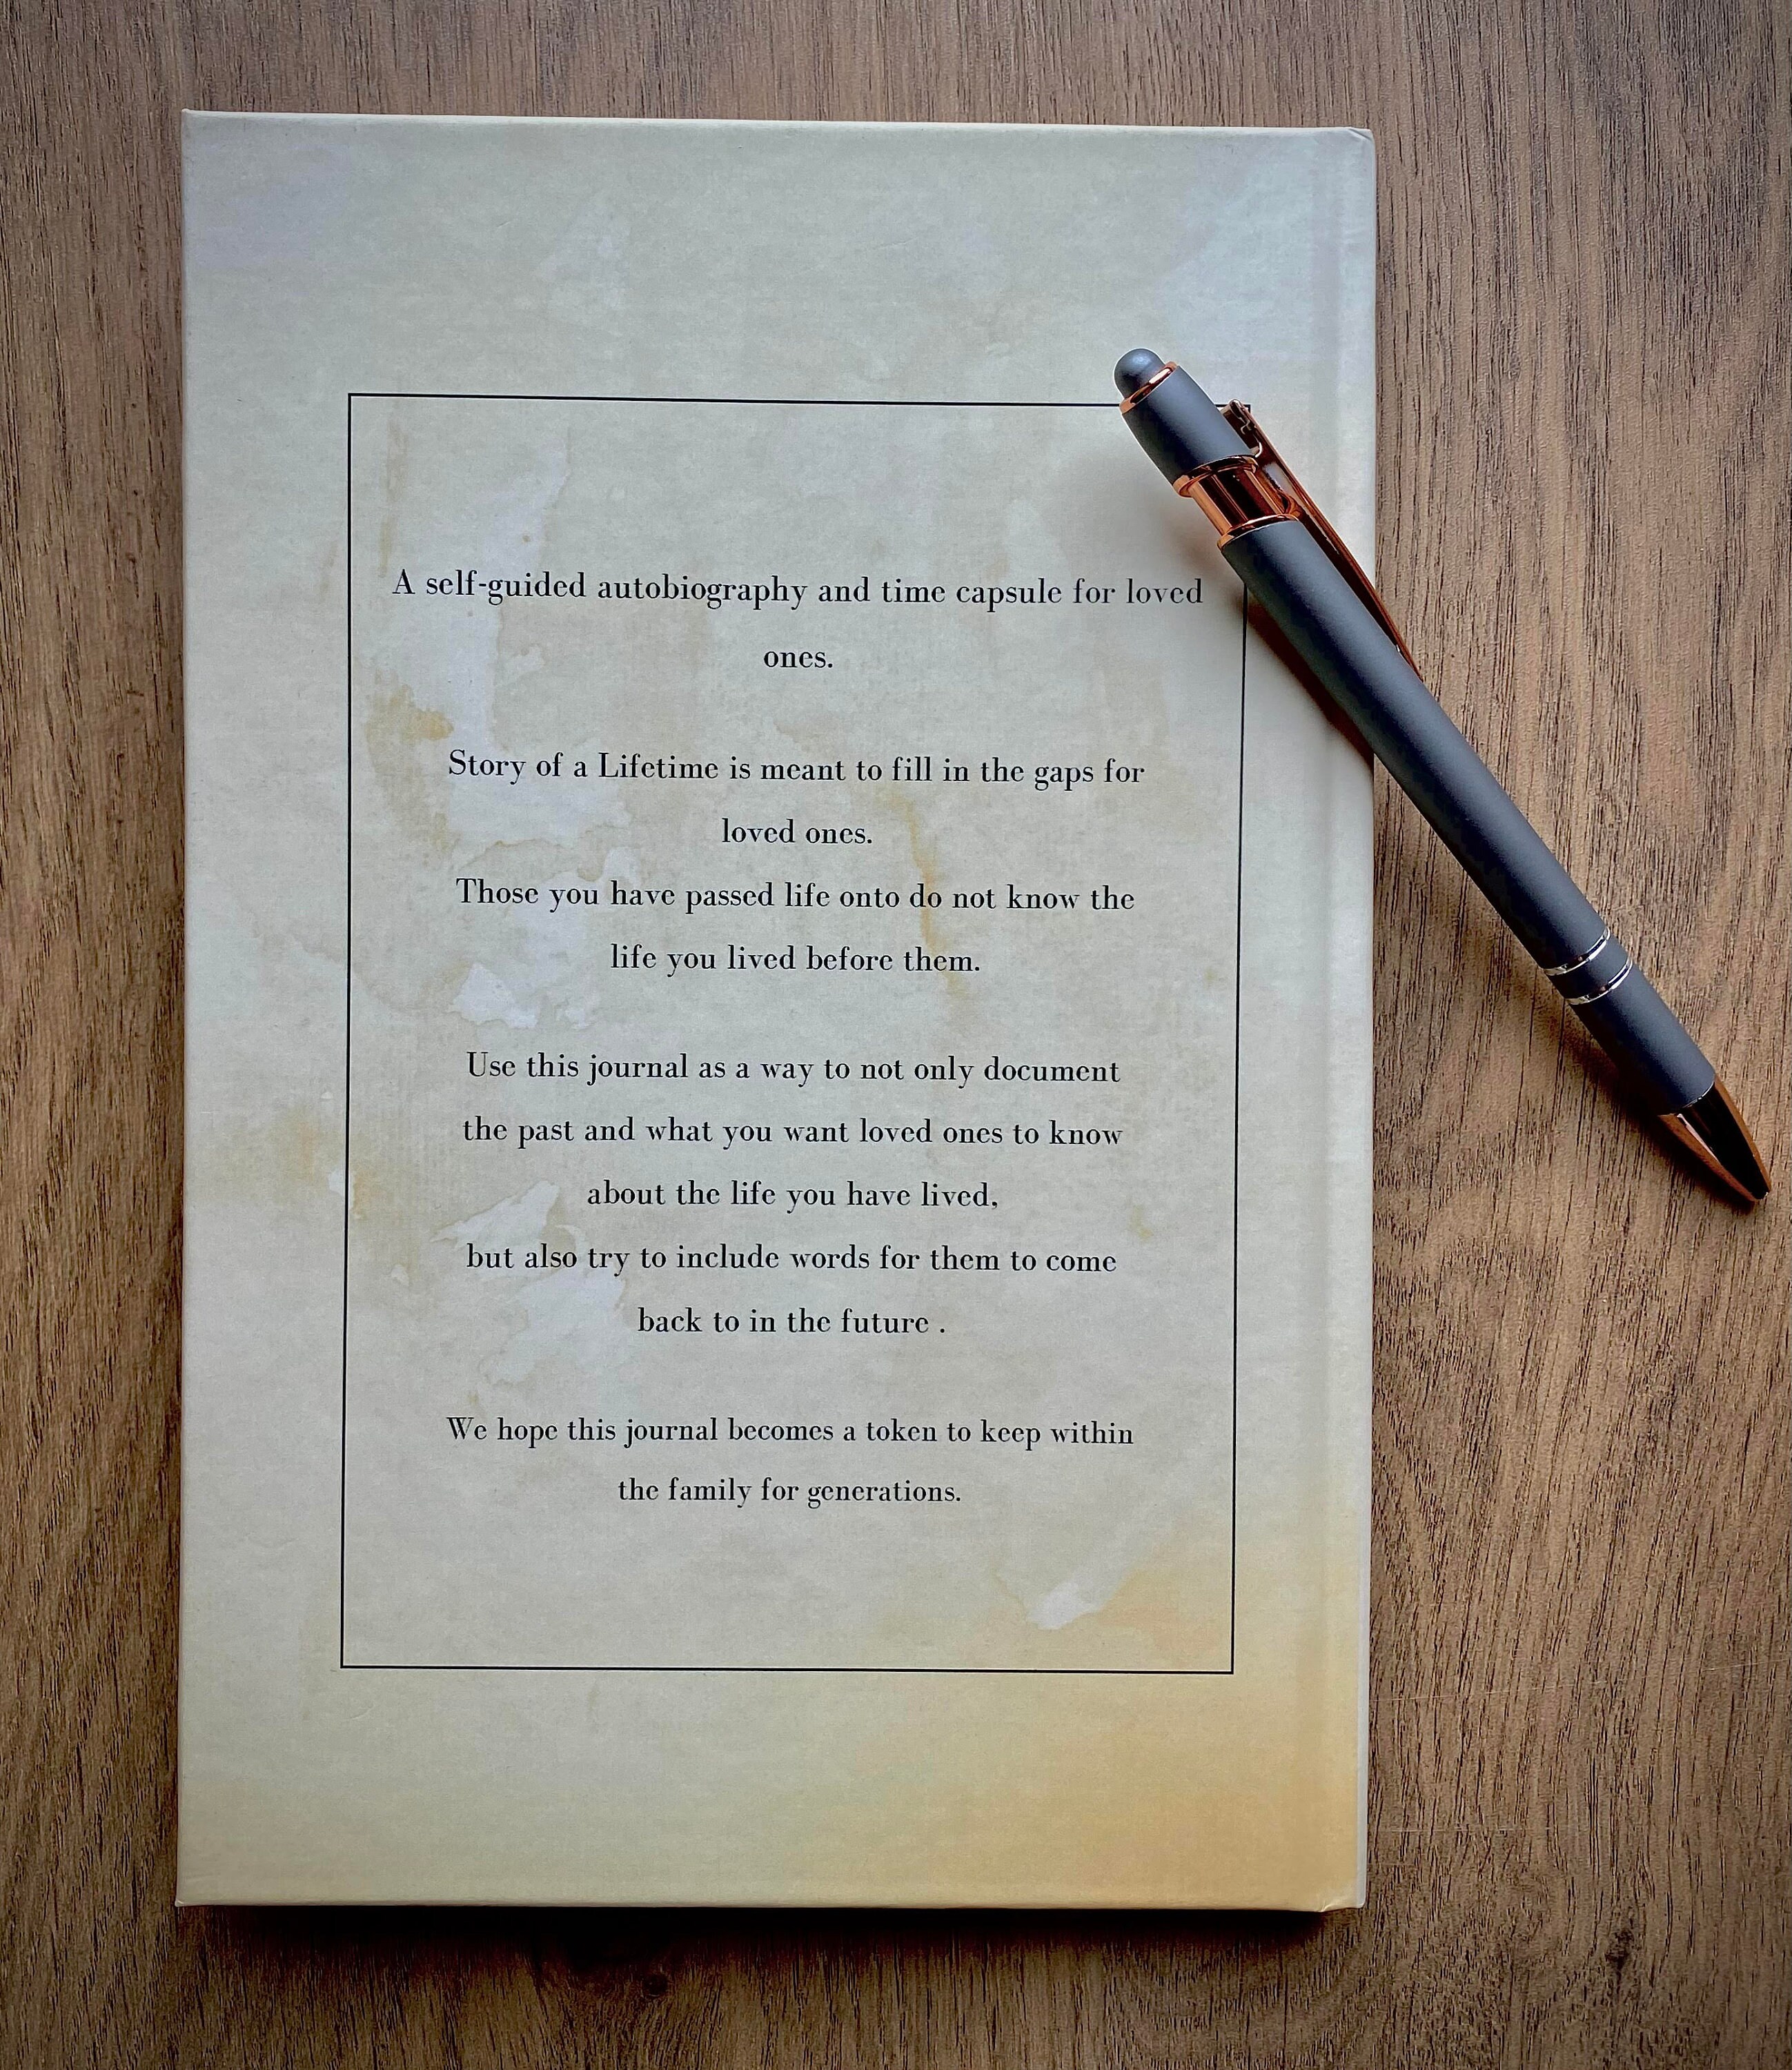 A self-guided autobiography and time capsule for loved
ones.
Story of a Lifetime is meant to fill in the gaps for
loved ones.
Those you have passed life onto do not know the
life you lived before them.
Use this journal as a way to not only document
the past and what you want loved ones to know
about the life you have lived,
but also try to include words for them to come
back to in the future .
We hope this journal becomes a token to keep within
the family for generations.